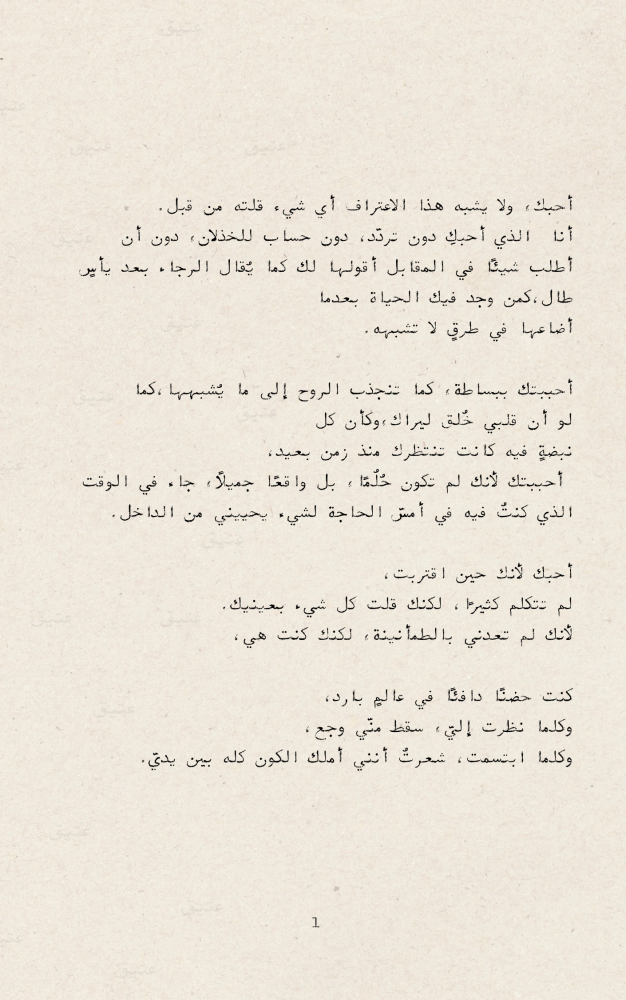 أحبك، ولا يشبه هذا الاعتراف أي شيء قلته من قبل.
أنا الذي أحبكِ دون تردّد، دون حساب للخذلان، دون أن
أطلب شيئًا في المقابل أقولها لك كما يُقال الرجاء بعد يأسٍ
طال،كمن وجد فيك الحياة بعدما
أضاعها في طرقٍ لا تشبهه.
أحببتك ببساطة، كما تنجذب الروح إلى ما يُشبهها،كما
لو أن قلبي خُلق ليراك،وكأن كل
نبضةٍ فيه كانت تنتظرك منذ زمن بعيد،
أحببتك لأنك لم تكون حُلُمًا، بل واقعًا جميلاً، جاء في الوقت
الذي كنتُ فيه في أمسّ الحاجة لشيء يحييني من الداخل.
أحبك لأنك حين اقتربت،
لم تتكلم كثيرًا، لكنك قلت كل شيء بعينيك.
لأنك لم تعدني بالطمأنينة، لكنك كنت هي،
كنت حضنًا دافئًا في عالمٍ بارد،
وكلما نظرت إليّ، سقط منّي وجع،
وكلما ابتسمت، شعرتُ أنني أملك الكون كله بين يديّ.
1